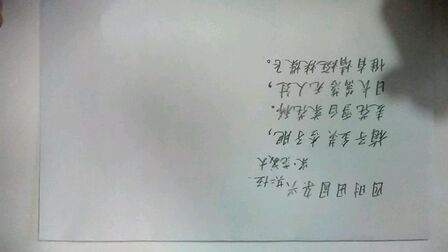 四时田园杂兴 其二
宋·范成大
梅子金黄杏子肥，
麦花雪白菜花稀。
日长篱落无人过，
惟有蜻蜓蛱蝶飞。